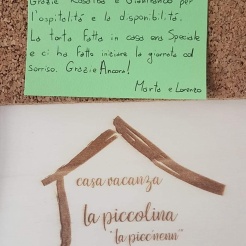 Grazie Rosalba e Gianfranco per
l'ospitalità e la disponibilità.
La torta fatta in casa era Speciale
e ci ha fatto iniziare la giornata col
sorriso. Grazie Ancora!
Marta e Lorenzo
casa vacanza
la piccolina
"la picc'nenn"